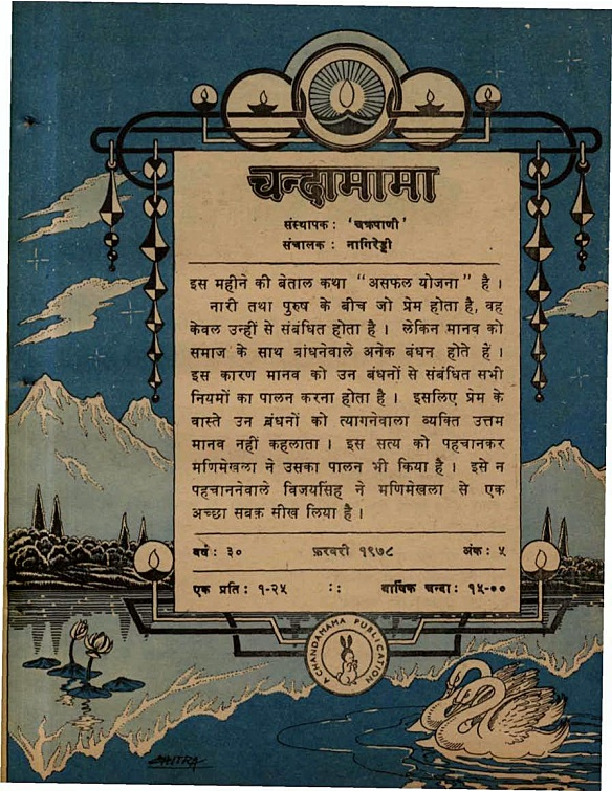 चन्दामामा
संस्थापक : "चक्रपाणी"
संचालक : नागिरेड्डी
इस महीने की बेताल कथा "असफल योजना" है ।
नारी तथा पुरुष के बीच जो प्रेम होता है, वह
केवल उन्हीं से संबंधित होता है । लेकिन मानव को
समाज के साथ बांधनेवाले अनेक बंधन होते हें ।
इस कारण मानव को उन बंधनों से संबंधित सभी
नियमों का पालन करना होता है । इसलिए प्रेम के
वास्ते उन बंधनों को त्यागनेवाला व्यक्ति उत्तम
मानव नहीं कहलाता । इस सत्य को पहचानकर
मणिमेखला ने उसका पालन भी किया है । इसे न
पहचाननेवाले विजयसिंह ने मणिमेखला से एक
अच्छा सबक़ सीख लिया है ।
वर्ष : ३० फ़रवरी १९७८ अंक : ५
एक प्रति : १-२५ :: वार्षिक चन्दा : १५-००
A CHANDAMAMA PUBLICATION
CHITRA